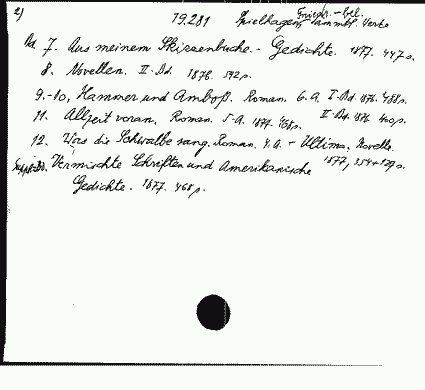 2) 19.281 Spielhagen, Friedr. sämmtl. Werke
Bd 7. Aus meinem Skizzenbuche. - Gedichte. 1877. 447 s.
8. Novellen. II. Bd. 1876. 592 s.
9.-10. Hammer und Amboß. Roman. 6. A. I. Bd. 1876. 488 s.
II. Bd. 1876 400 p.
11. Allzeit voran. Roman. 5. A. 1877. 468 s.
12. Was die Schwalbe sang. Roman. 4. A. - Ultimo, Novelle.
1877,
Vermischte Schriften und Amerikanische
Gedichte. 1877. 468 s.